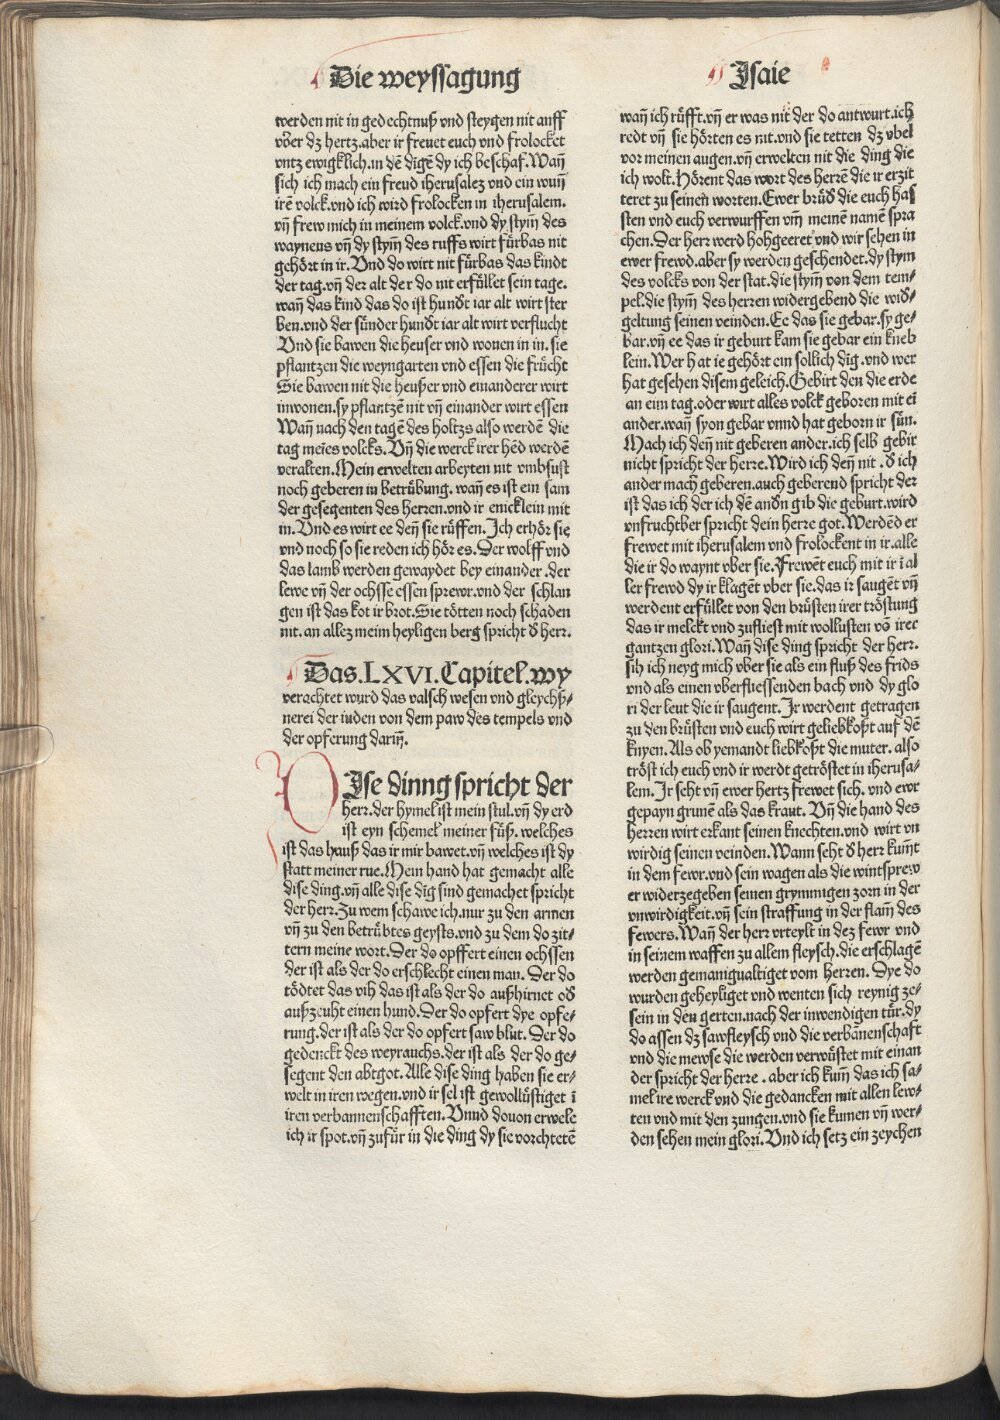 Die weyssagung
Jsaie
werden nit in gedechtnuß vnd steygen nit auff
vber dz hertz.aber ir frevet euch vnd frolocket
vntz ewigklich.in dē dīgē dy ich beschaf.Wañ
sich ich mach ein freud iherusalez vnd ein wuñ
irē volck.vnd ich wird frolocken in iherusalem.
vñ frew mich in meinem volck.vnd dy stym̄ des
waynens vñ dy stym̄ des ruffs wirt fürbas nit
gehört in ir.Vnd do wirt nit fürbas das kindt
der tag.vñ der alt der do nit erfüllet sein tage.
wañ das kind das do ist hundt iar alt wirt ster
ben.vnd der sünder hundt iar alt wirt verflucht
Vnd sie bawen die heuser vnd wonen in in.sie
pflantzen die weyngarten vnd essen die frücht
Sie bawen nit die heußer vnd einanderer wirt
inwonen.sy pflantzē nit vñ einander wirt essen
Wañ nach den tagē des holtzs also werdē die
tag meīes volcks.Vñ die werck irer hēd werdē
veralten.Mein erwelten arbeyten nit vmbsust
noch geberen in betrübung. wañ es ist ein sam
der gesegenten des herren.vnd ir enicklein mit
in.Vnd es wirt ee deñ sie rüffen.Jch erhör sie
vnd noch so sie reden ich hör es.Der wolff vnd
das lamb werden gewaydet bey einander.der
lewe vñ der ochsse essen sprewr.vnd der schlan
gen ist das kot ir brot.Sie tötten noch schaden
nit.an allez meim heyligen berg spricht d herr.
Das.LXVI.Capitel.wy
verachtet wurd das valsch wesen vnd gleychß⸗
nerei der iuden von dem paw des tempels vnd
der opferung dariñ.
DJse dinng spricht der
herr.der hymel ist mein stul.vñ dy erd
ist eyn schemel meiner füß. welches
ist das hauß das ir mir bawet.vñ welches ist dy
statt meiner rue.Mein hand hat gemacht alle
dise ding.vñ alle dise dīg sind gemachet spricht
der herr.Zu wem schawe ich.nur zu den armen
vñ zu den betrübtes geysts.vnd zu dem do zit⸗
tern meine wort.Der do opffert einen ochssen
der ist als der do erschlecht einen man. Der do
tödtet das vih das ist als der do außhirnet od
außzeuht einen hund.Der do opfert dye opfe⸗
rung.der ist als der do opfert saw blut. Der do
gedenckt des weyrauchs.der ist als der do ge⸗
segent den abtgot.Alle dise ding haben sie er⸗
welt in iren wegen.vnd ir sel ist gewollüstiget ī
iren verbannenschafften. Vnnd douon erwele
ich ir spot.vñ zufür in die ding dy sie vorchtetē
wañ ich rüfft.vñ er was nit der do antwurt.ich
redt vñ sie hörten es nit.vnd sie tetten dz vbel
vor meinen augen.vñ erwelten nit die ding die
ich wolt.Hörent das wort des herrē die ir erzit
teret zu seinen worten.Ewer brüd die euch has
sten vnd euch verwurffen vm̄ meinē namē spra
chen.Der herr werd hohgeeret vnd wir sehen in
ewer frewd.aber sy werden geschendet.dy stym
des volcks von der stat.die stym̄ von dem tem⸗
pel.die stym̄ des herren widergebend die wid⸗
geltung seinen veinden.Ee das sie gebar.sy ge⸗
bar.vñ ee das ir geburt kam sie gebar ein kneb
lein.Wer hat ie gehört ein sollich dīg.vnd wer
hat gesehen disem geleich.Gebirt den die erde
an eim tag.oder wirt alles volck geboren mit eī
ander.wañ syon gebar vnnd hat geborn ir sün.
Mach ich deñ nit geberen ander.ich selb gebir
nicht spricht der herre.Wird ich deñ nit.d ich
ander mach geberen.auch geberend spricht der
ist das ich der ich dē andn gib die geburt.wird
vnfruchtber spricht dein herre got.Werdēd er
frewet mit iherusalem vnd frolockent in ir.alle
die ir do waynt vber sie.Frewēt euch mit ir ī al
ler frewd dy ir klagēt vber sie.das ir saugēt vñ
werdent erfüllet von den brüsten irer tröstung
das ir melckt vnd zufliest mit wollusten vō irer
gantzen glori.Wañ dise ding spricht der herr.
sih ich neyg mich vber sie als ein fluß des frids
vnd als einen vberfliessenden bach vnd dy glo
ri der leut die ir saugent. Jr werdent getragen
zu den brüsten vnd euch wirt geliebkoßt auf dē
knyen.Als ob yemandt liebkoßt die muter. also
tröst ich euch vnd ir werdt getröstet in iherusa⸗
lem. Jr seht vñ ewer hertz frewet sich. vnd ewr
gepayn grunē als das kraut. Vñ die hand des
herren wirt erkant seinen knechten.vnd wirt vn
wirdig seinen veinden.Wann seht d herr kum̄t
in dem fewr.vnd sein wagen als die wintsprew
er widerzegeben seinen grymmigen zorn in der
vnwirdigkeit.vñ sein straffung in der flam̄ des
fewers.Wañ der herr vrteylt in dez fewr vnd
in seinem waffen zu allem fleysch.die erschlagē
werden gemanigualtiget vom herren. Dye do
wurden geheyliget vnd wenten sich reynig ze⸗
sein in den gerten.nach der inwendigen tür.dy
do assen dz sawfleysch vnd die verbānenschaft
vnd die mewse die werden verwüstet mit einan
der spricht der herre.aber ich kum̄ das ich sa⸗
mel ire werck vnd die gedancken mit allen lew⸗
ten vnd mit den zungen.vnd sie kumen vñ wer⸗
den sehen mein glori.Vnd ich setz ein zeychen